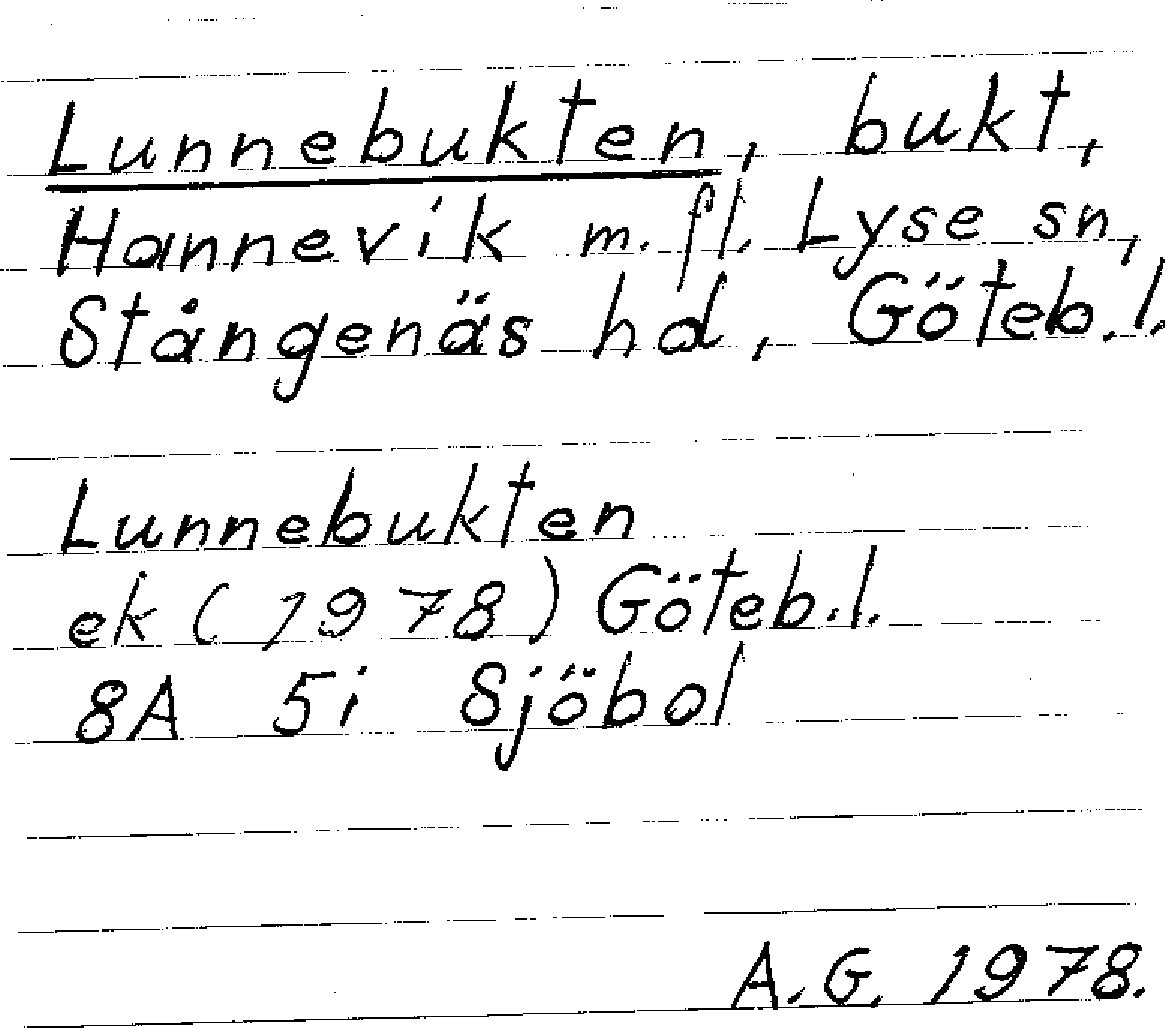 Lunnebukten, bukt,
Hannevik m. fl. Lyse sn,
Stångenäs hd, Göteb. l.
Lunnebukten
ek (1978) Göteb. l.
8A 5i Sjöbol
A. G. 1978.